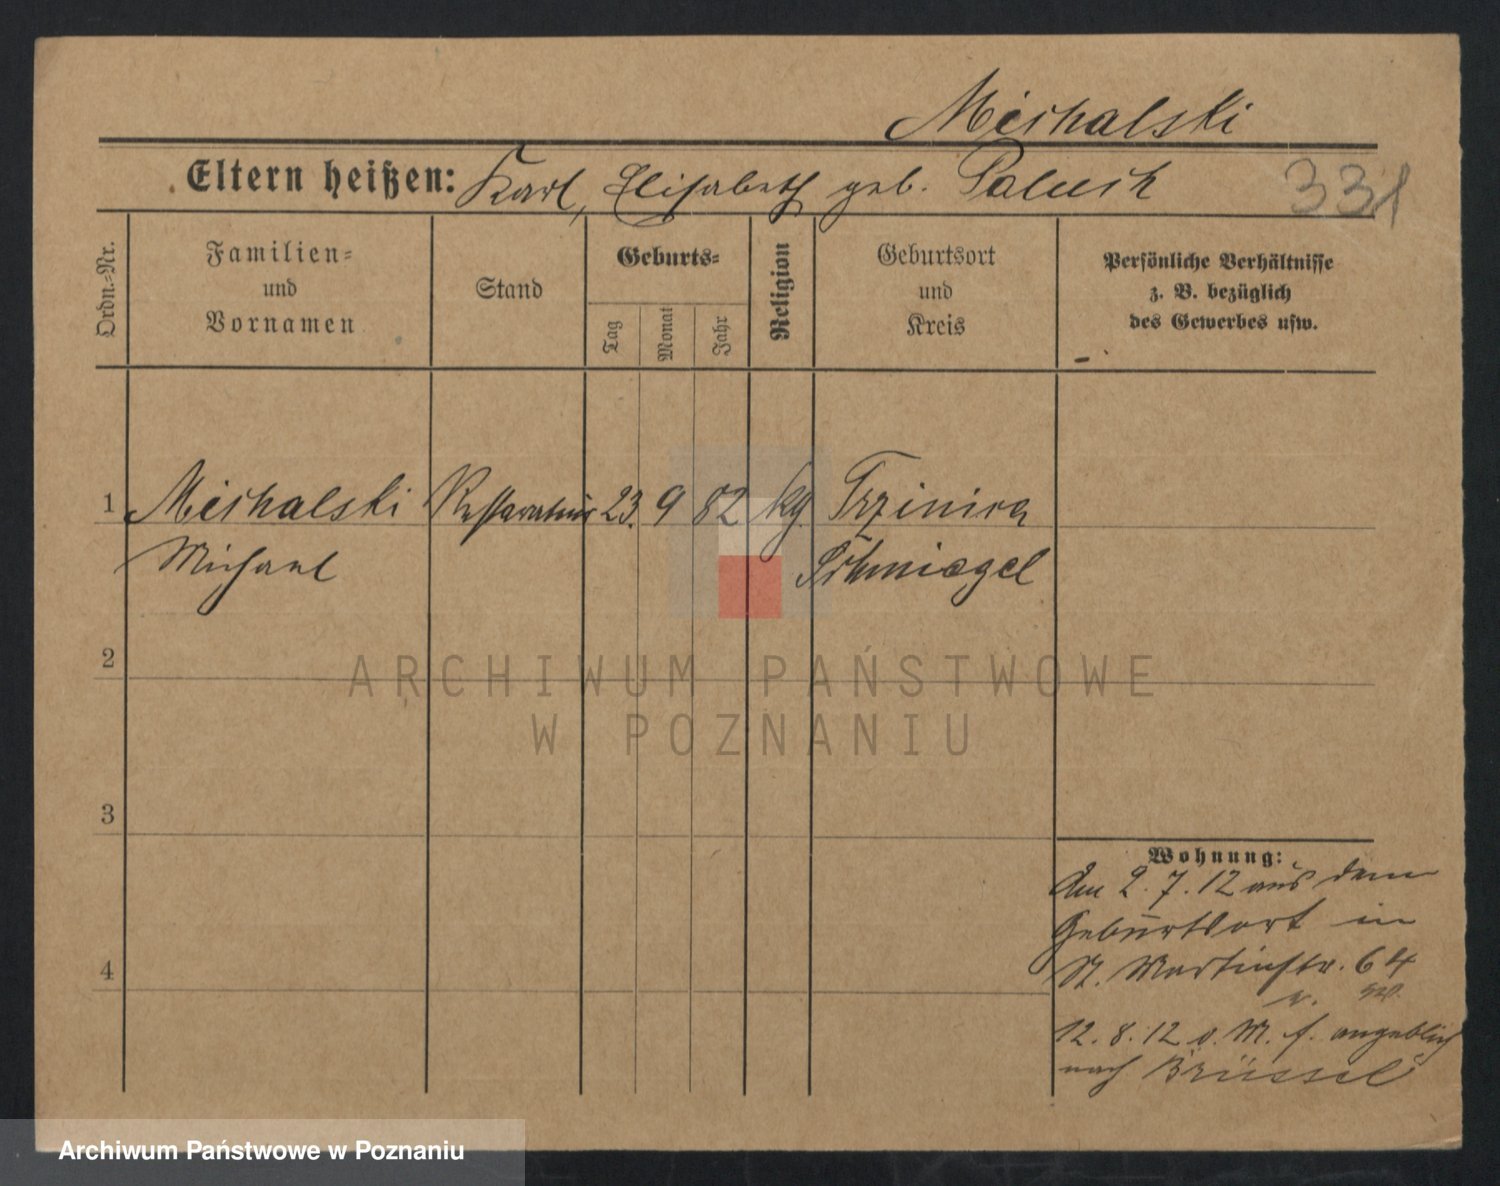 Michalski
Eltern heißen: Karl, Elisabeth geb. Palusch
331
Ordn.=Nr.
Familien=
und
Vornamen
Stand
Geburts=
Tag
Monat
Jahr
Religion
Geburtsort
und
Kreis
Persönliche Verhältnisse
z. B. bezüglich
des Gewerbes usw.
1 Michalski 23. 9 82 kg. Trzinica
Michael Schmiegel
2
ARCHIWUM PAŃSTWOWE
W POZNANIU
3
4
Wohnung:
Am 2.7.12 aus dem
Geburtsort in
St. Martinstr. 64
12.8.12 o. M. f. angeblich
nach Brüssel
Archiwum Państwowe w Poznaniu